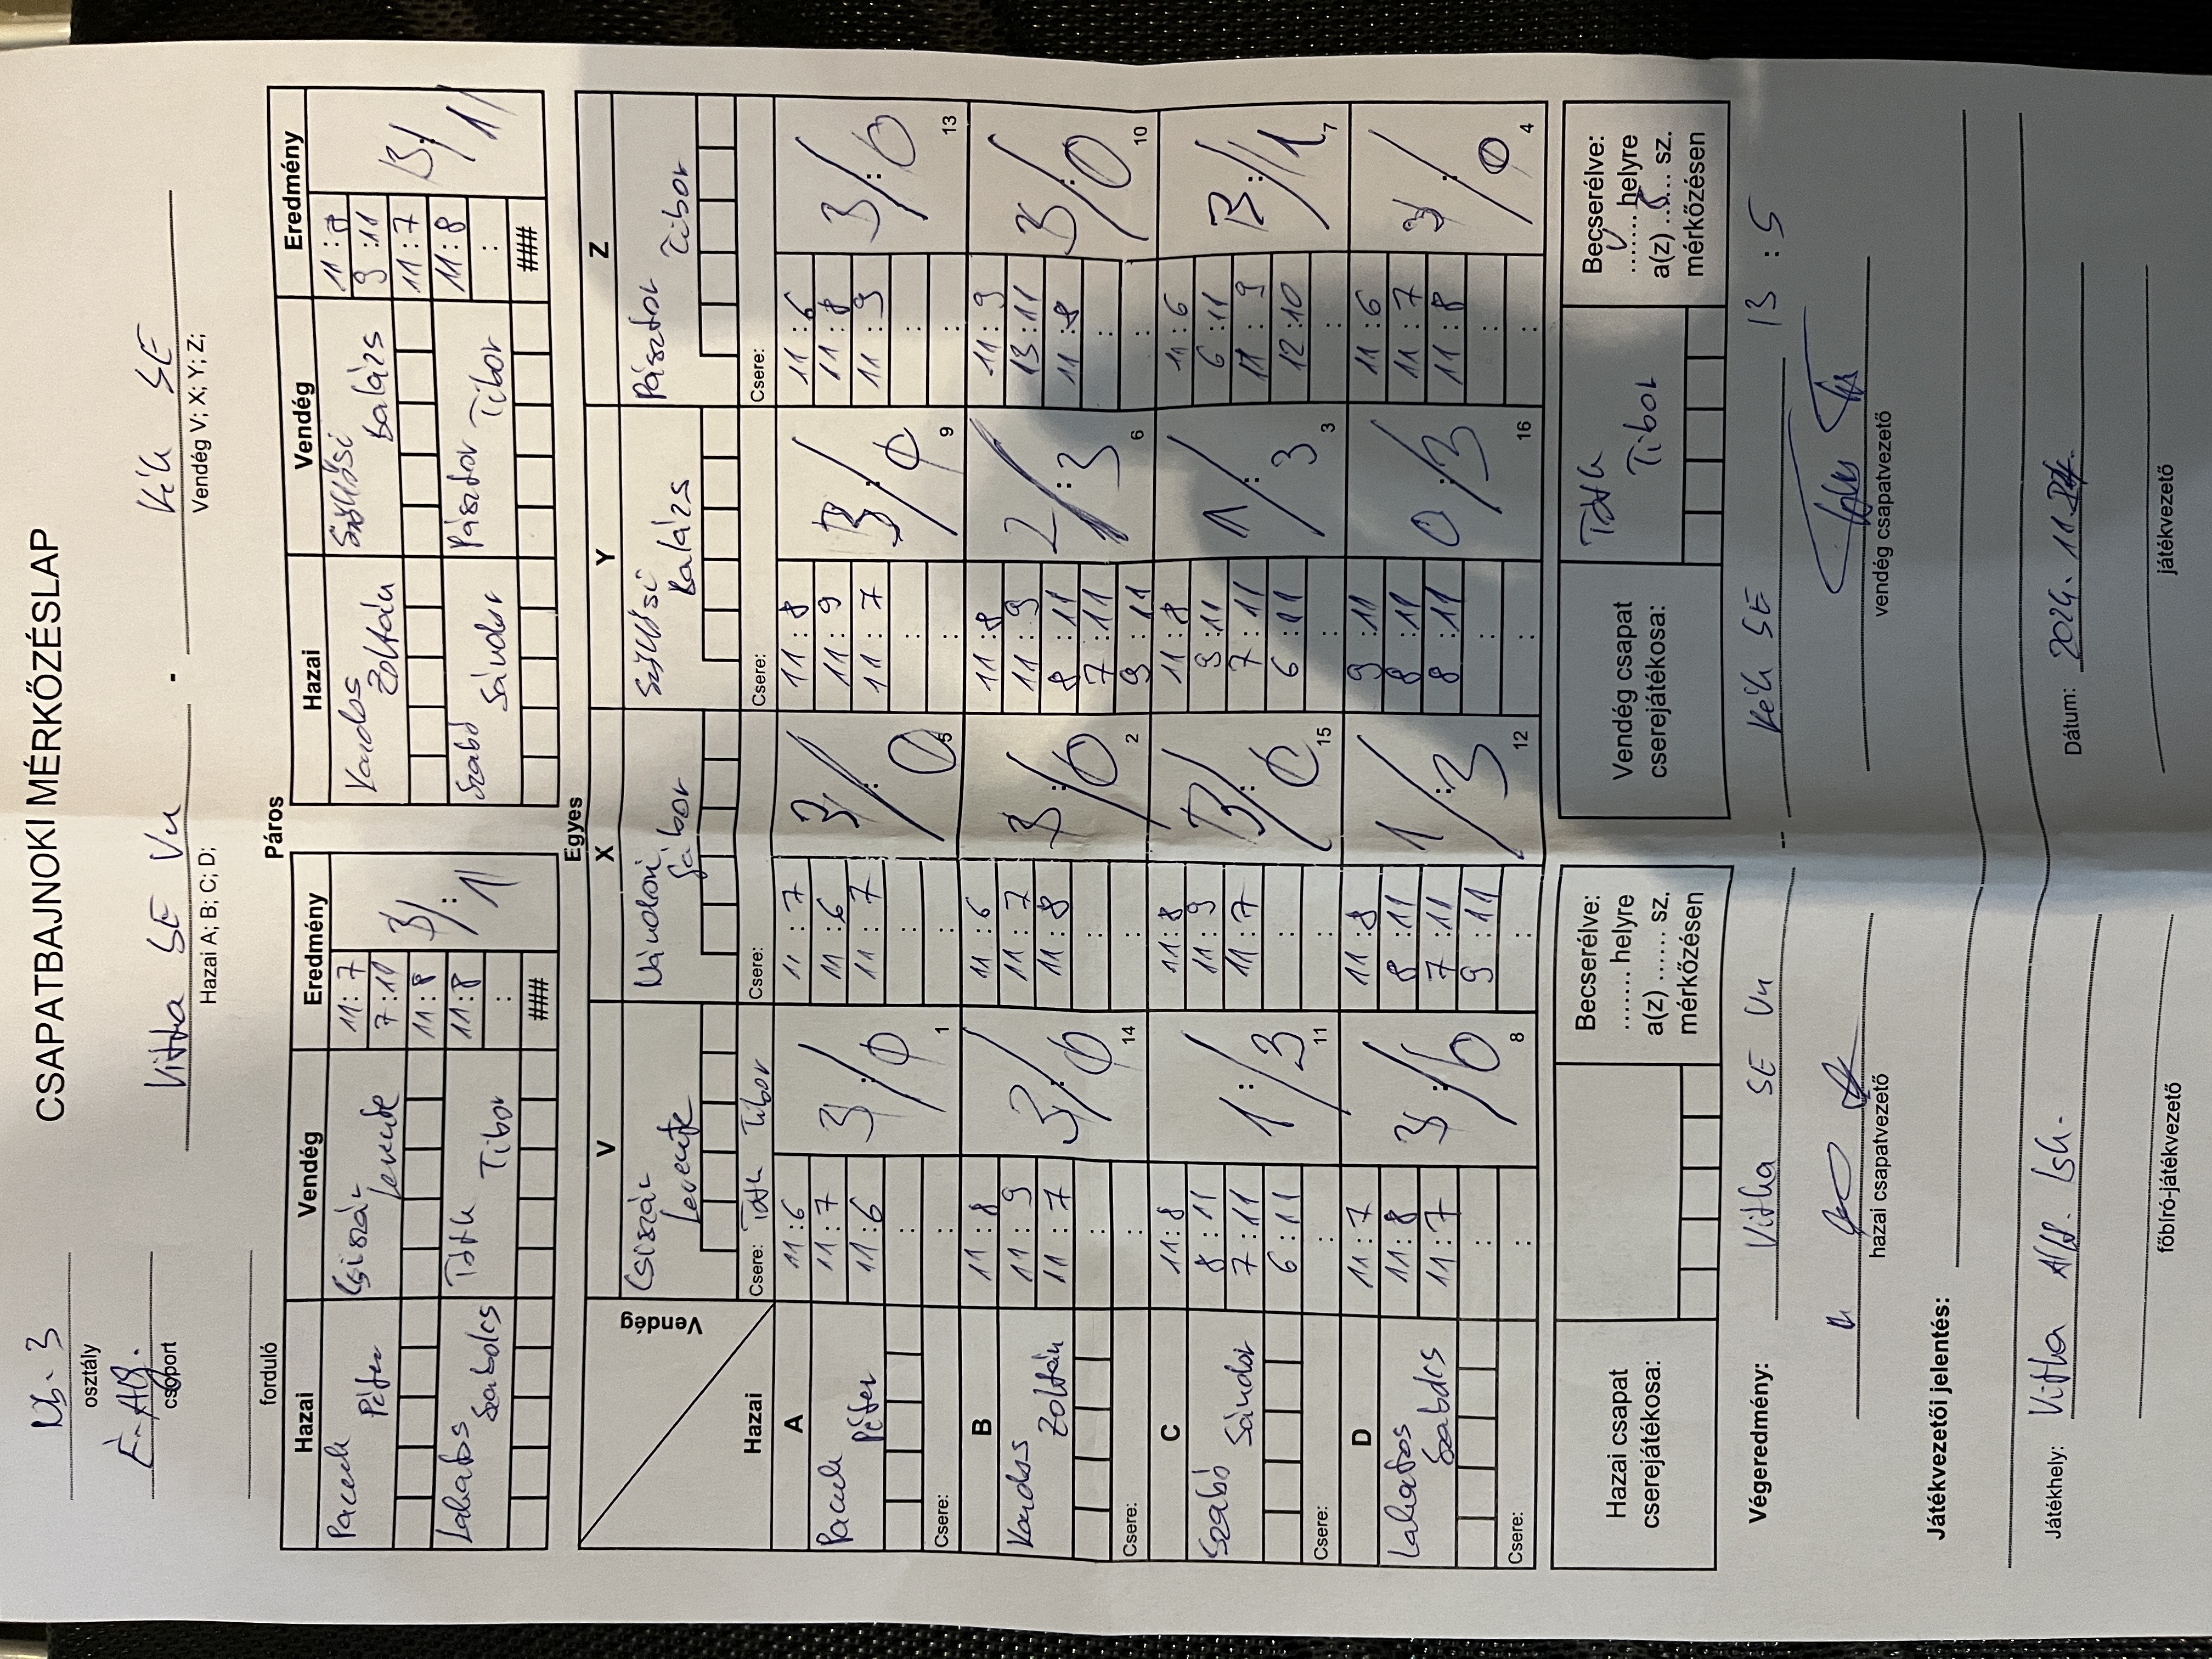 CSAPATBAJNOKI MÉRKŐZÉSLAP
NB. 3
osztály
É-AB.
csoport
forduló
Vitha SE VII - Kék SE
Hazai A; B; C; D; Vendég V; X; Y; Z;
Páros
Hazai Vendég Eredmény Hazai Vendég Eredmény
Pacsek Péter Csiszár Levente 11:7 7:11 11:8 11:8 : ### 3:1
Lakatos Szabolcs Tóth Tibor
Kardos Zoltán Szöllősi Balázs 11:8 9:11 11:7 11:8 : ### 3:1
Szabó Sándor Pásztor Tibor
Egyes
Vendég
Hazai
V X Y Z
Csiszár Levente Nándori Gábor Szöllősi Balázs Pásztor Tibor
Csere: Tóth Tibor Csere: Csere: Csere:
A
Pacsek Péter
Csere:
11:6 11:7 11:6 : : 3:0 1
11:7 11:6 11:7 : : 3:0 5
11:8 11:9 11:7 : : 3:0 9
11:6 11:8 11:9 : : 3:0 13
B
Kardos Zoltán
Csere:
11:8 11:9 11:7 : : 3:0 14
11:6 11:7 11:8 : : 3:0 2
11:8 11:9 8:11 7:11 9:11 2:3 6
11:9 13:11 11:8 : : 3:0 10
C
Szabó Sándor
Csere:
11:8 8:11 7:11 6:11 : 1:3 11
11:8 11:9 11:7 : : 3:0 15
11:8 9:11 7:11 6:11 : 1:3 3
11:6 6:11 11:9 12:10 : 3:1 7
D
Lakatos Szabolcs
Csere:
11:7 11:8 11:7 : : 3:0 8
11:8 8:11 7:11 9:11 : 1:3 12
9:11 8:11 8:11 : : 0:3 16
11:6 11:7 11:8 : : 3:0 4
Hazai csapat cserejátékosa:
Becserélve:
....... helyre
a(z) ...... sz.
mérkőzésen
Vendég csapat cserejátékosa: Tóth Tibor
Becserélve:
V helyre
a(z) 8 sz.
mérkőzésen
Végeredmény: Vitha SE VII -- Kék SE 13 : 5
hazai csapatvezető vendég csapatvezető
Játékvezetői jelentés:
Játékhely: Vitha Ált. Isk. Dátum: 2024. 11.
főbíró-játékvezető játékvezető